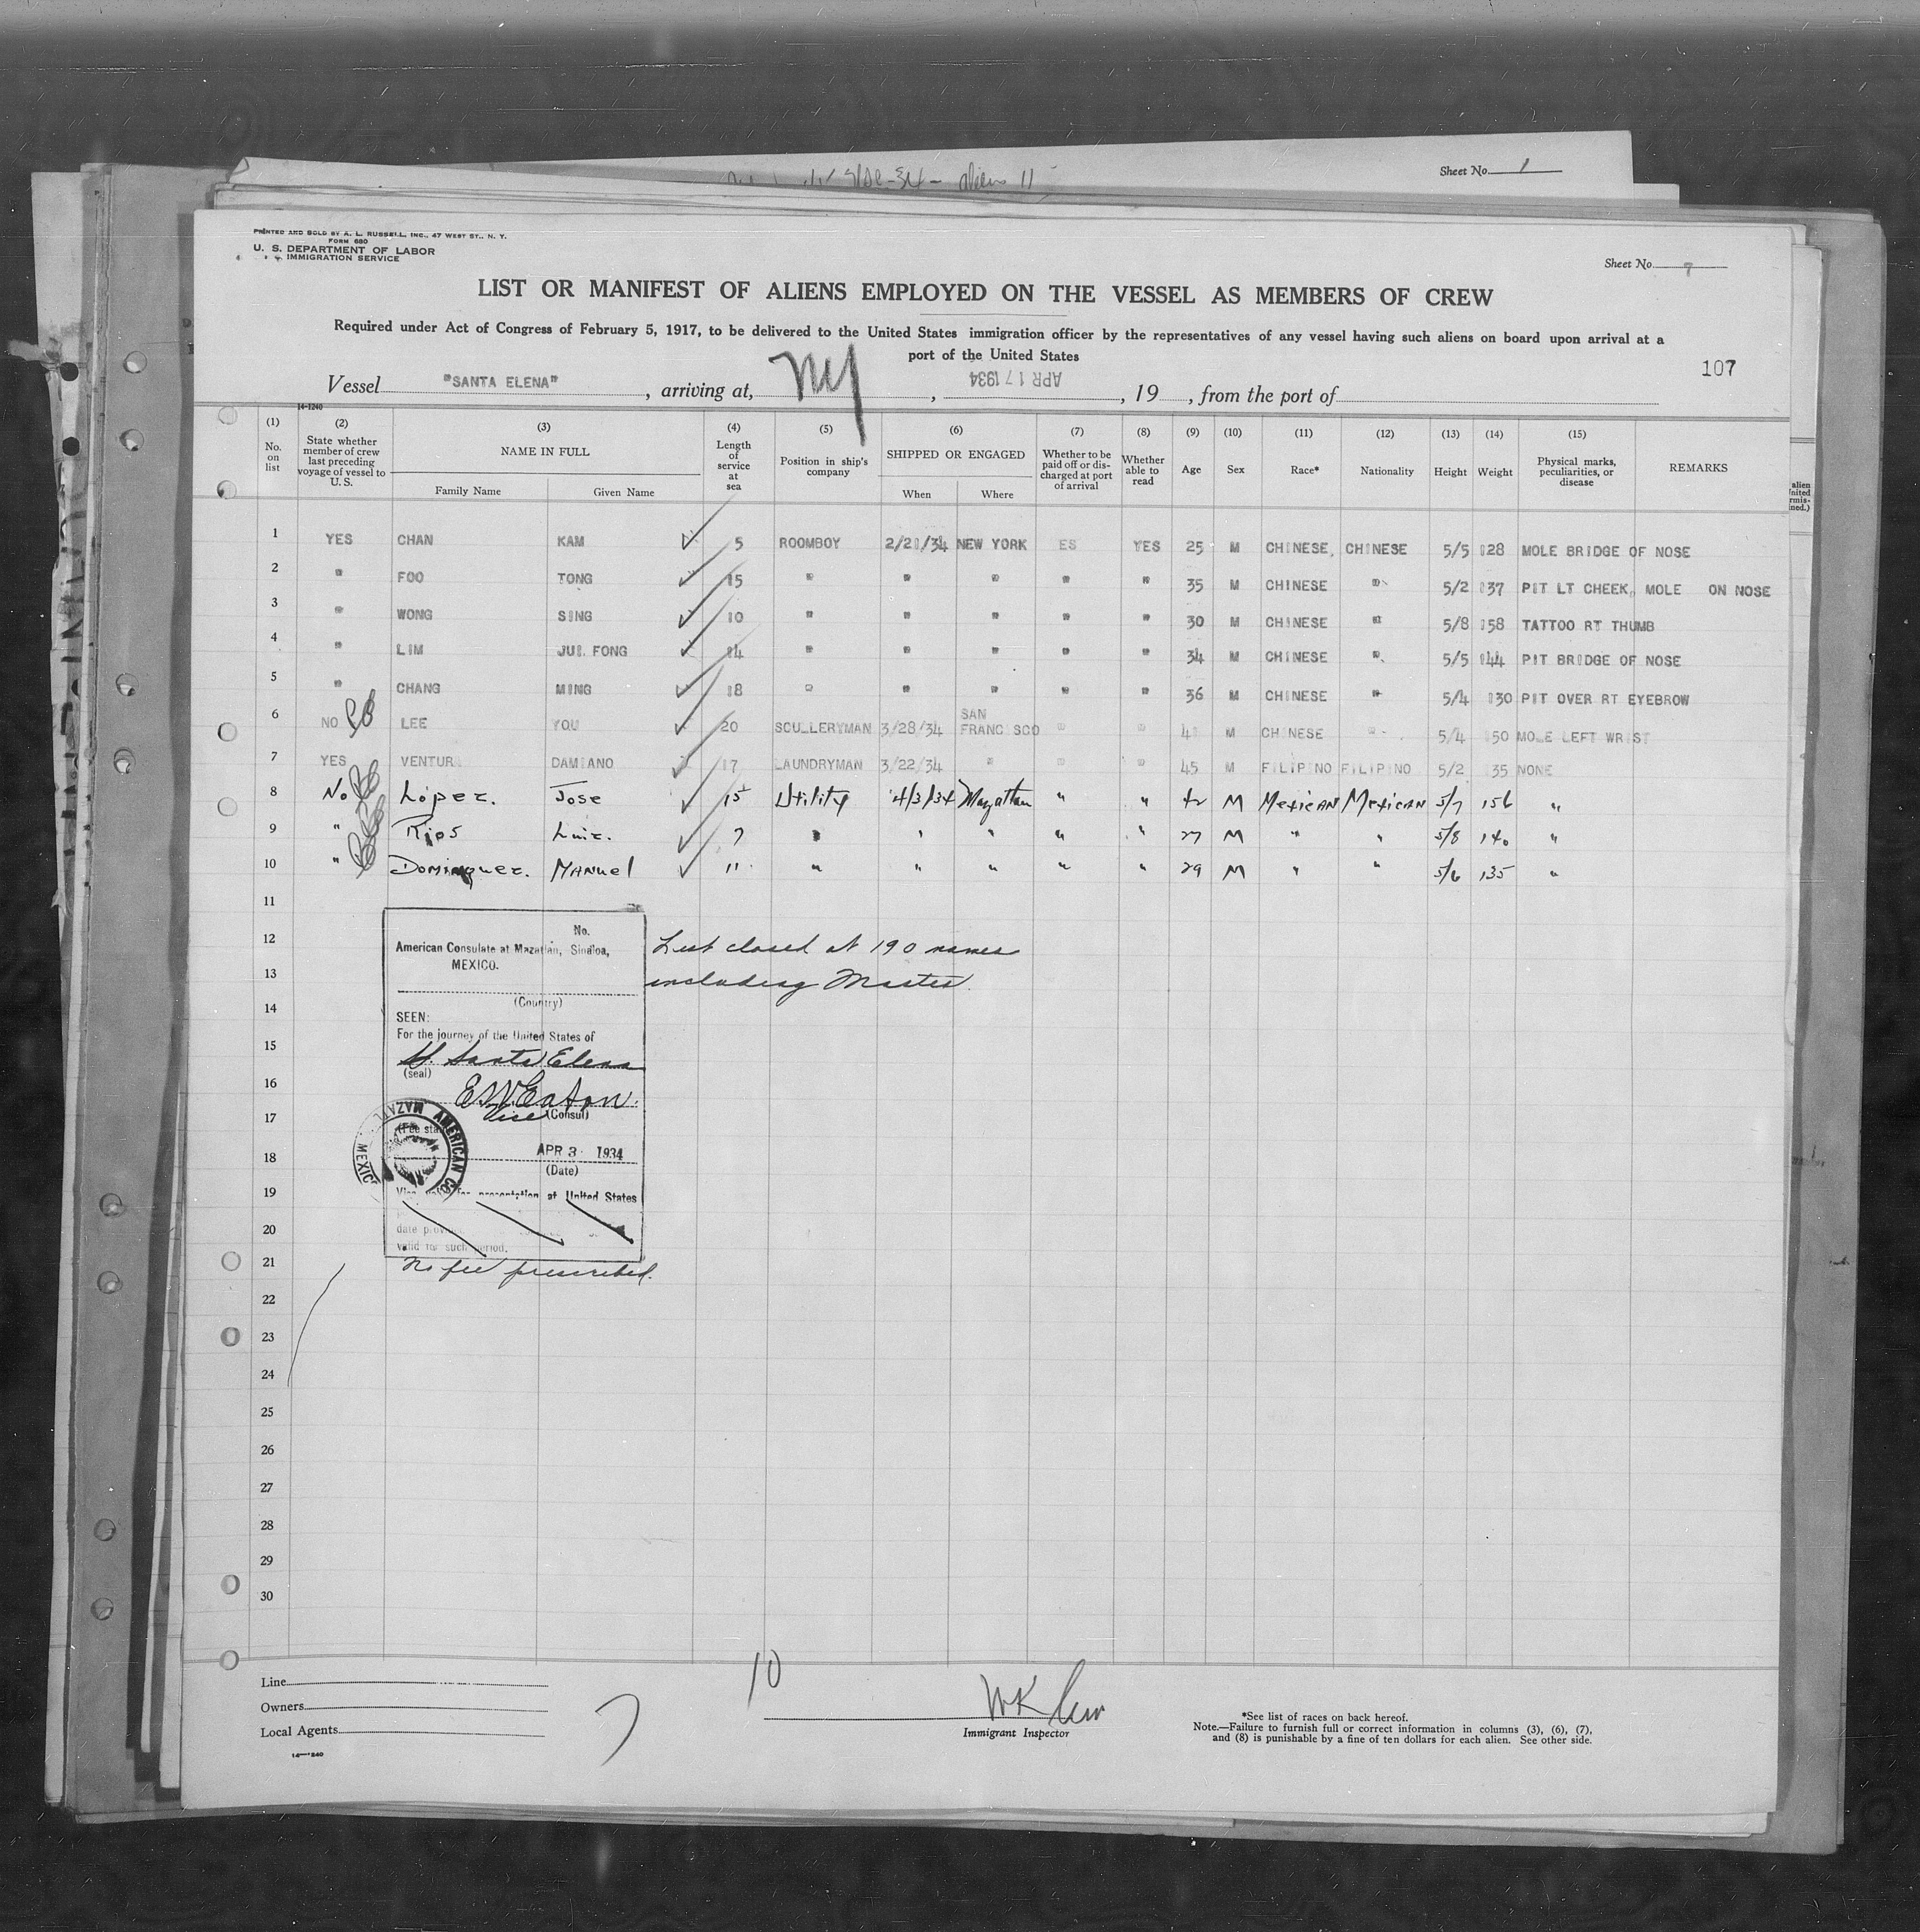 Sheet No. 1
PRINTED AND SOLD BY A. L. RUSSELL, INC., 47 WEST ST., N. Y.
FORM 680
U. S. DEPARTMENT OF LABOR
IMMIGRATION SERVICE
Sheet No. 7
LIST OR MANIFEST OF ALIENS EMPLOYED ON THE VESSEL AS MEMBERS OF CREW
Required under Act of Congress of February 5, 1917, to be delivered to the United States immigration officer by the representatives of any vessel having such aliens on board upon arrival at a
port of the United States
107
Vessel "SANTA ELENA", arriving at, NY, APR 17 1934, 19, from the port of
14-1240
(1) No. on list (2) State whether member of crew last preceding voyage of vessel to U.S. (3) NAME IN FULL Family Name Given Name (4) Length of service at sea (5) Position in ship's company (6) SHIPPED OR ENGAGED When Where (7) Whether to be paid off or discharged at port of arrival (8) Whether able to read (9) Age (10) Sex (11) Race* (12) Nationality (13) Height (14) Weight (15) Physical marks, peculiarities, or disease REMARKS
1 YES CHAN KAM 5 ROOMBOY 2/21/34 NEW YORK ES YES 25 M CHINESE CHINESE 5/5 128 MOLE BRIDGE OF NOSE
2 " FOO TONG 15 " " " " " 35 M CHINESE " 5/2 137 PIT LT CHEEK, MOLE ON NOSE
3 " WONG SING 10 " " " " " 30 M CHINESE " 5/8 158 TATTOO RT THUMB
4 " LIM JUI FONG 14 " " " " " 34 M CHINESE " 5/5 144 PIT BRIDGE OF NOSE
5 " CHANG MING 18 " " " " " 36 M CHINESE " 5/4 130 PIT OVER RT EYEBROW
6 NO LEE YOU 20 SCULLERYMAN 3/28/34 SAN FRANCISCO " " 41 M CHINESE " 5/4 150 MOLE LEFT WRIST
7 YES VENTUR DAMIANO 17 LAUNDRYMAN 3/22/34 " " " 45 M FILIPINO FILIPINO 5/2 135 NONE
8 No Lopez. Jose 15 Utility 4/3/34 Mazatlan " " 42 M Mexican Mexican 5/7 156 "
9 " Rios Luiz. 7 " " " " " 27 M " " 5/8 140 "
10 " Dominguez. Manuel 11 " " " " " 29 M " " 5/6 135 "
11
12
13
14
15
16
17
18
19
20
21
22
23
24
25
26
27
28
29
30
No.
American Consulate at Mazatlan, Sinaloa,
MEXICO.
(Country)
SEEN:
For the journey of the United States of
SS. Santa Elena
(seal)
E W Eaton
Vice (Consul)
(Fee sta
APR 3 1934
(Date)
for presentation at United States
date prov
valid for such period.
No fee prescribed.
AMERICAN
MAZAT
MEXIC
List closed at 190 names
including Master.
Line
Owners
Local Agents
14-1240
7
10
Immigrant Inspector
*See list of races on back hereof.
Note.—Failure to furnish full or correct information in columns (3), (6), (7),
and (8) is punishable by a fine of ten dollars for each alien. See other side.